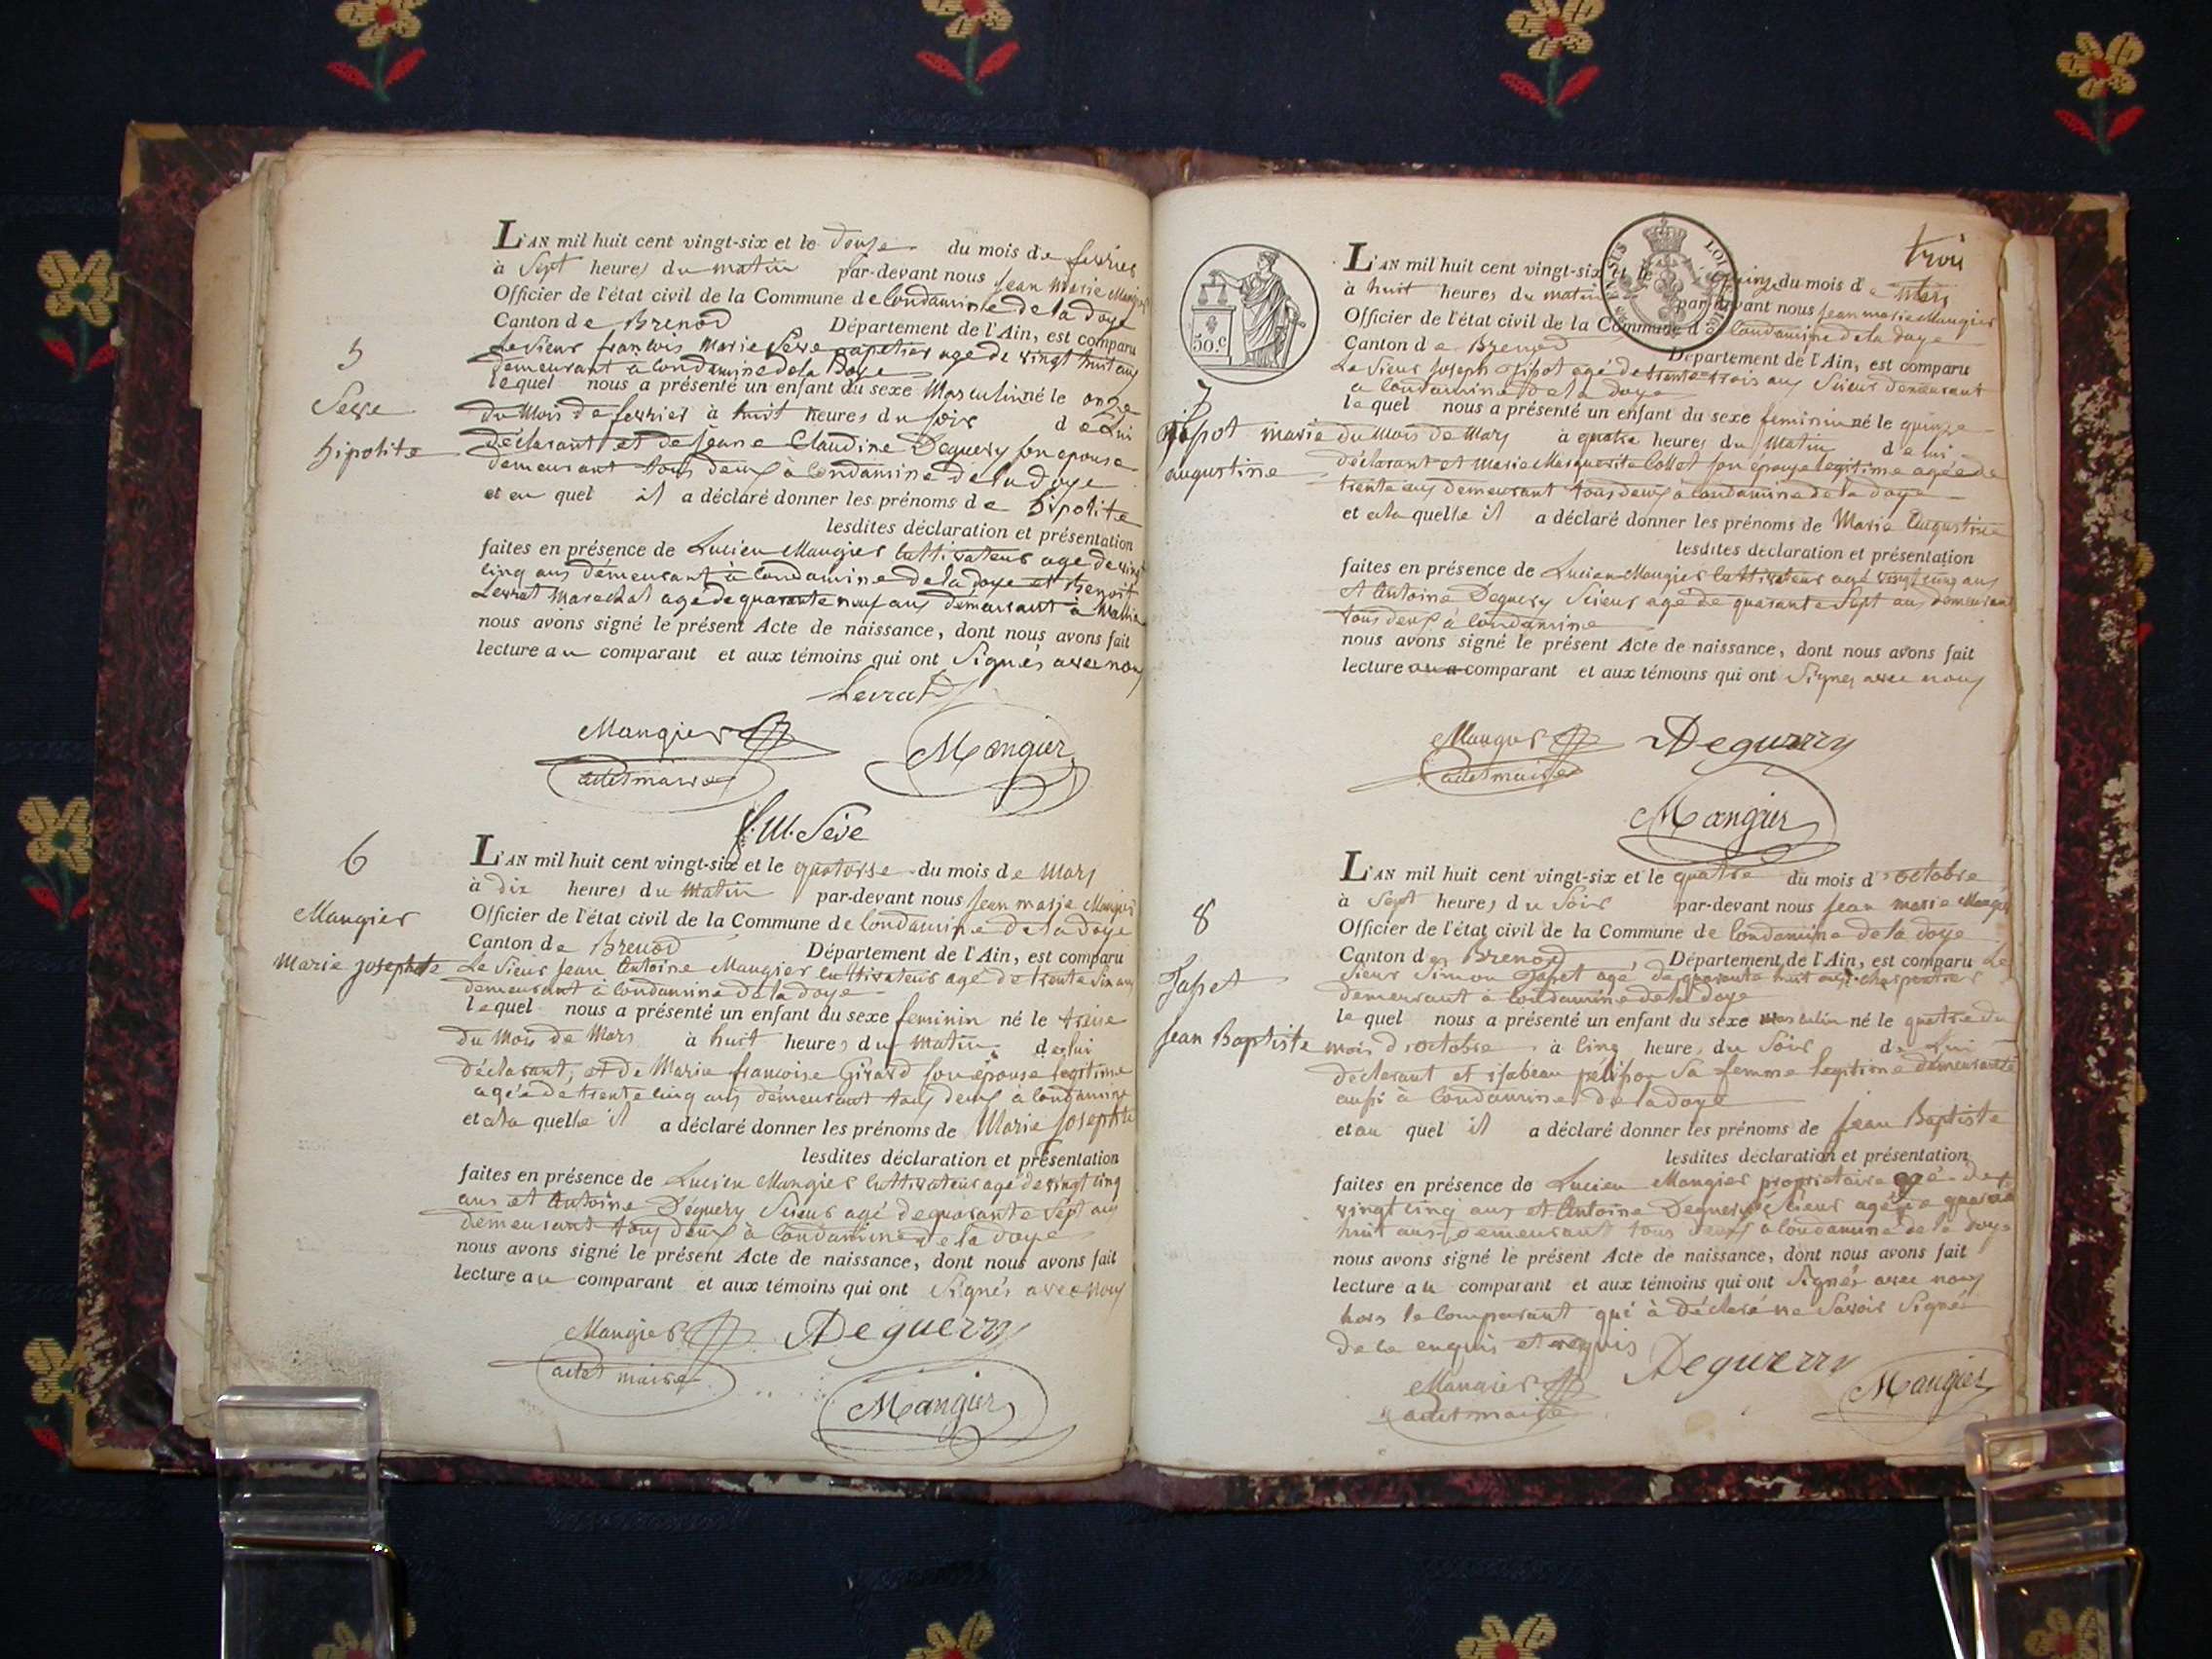 L'AN mil huit cent vingt-six et le douse du mois de fevrier
à Sept heures du matin par-devant nous jean marie Mangier
Officier de l'état civil de la Commune de Condamine de la doye
Canton de Brenod Département de l'Ain, est comparu
Le Sieur françois Marie Seve agé de vingt huit ans
demeurant a Condamine de la Doye
lequel nous a présenté un enfant du sexe Masculin né le onze
du Mois de fevrier à huit heures du soir de Lui
déclarant et de jeane Claudine Deguery son epouse
demeurant tous deux à Condamine de la doye
et au quel il a déclaré donner les prénoms de hipolite
lesdites déclaration et présentation
faites en présence de Lucien Mangier Cultivateur age de vingt
Cinq ans démeurant à Condamine de la doye et Benoit
Levrat Marechal age de quarante neuf ans démeurant à
nous avons signé le présent Acte de naissance, dont nous avons fait
lecture au comparant et aux témoins qui ont Signés avec nous
Levrat
Mangier
adet maire
Mangier
f. M. Seve
5
Seve
hipolite
6
Mangier
Marie josephte
L'AN mil huit cent vingt-six et le quatorse du mois de Mars
à dix heures du matin par-devant nous jean marie Mangier
Officier de l'état civil de la Commune de Condamine de la doye
Canton de Brenod Département de l'Ain, est comparu
Le Sieur jean Antoine Maugier Cultivateur agé de trente Six ans
demeurant à Condamine de la doye
lequel nous a présenté un enfant du sexe feminin né le treise
du Mois de Mars à huit heures du matin de lui
déclarant, et de Marie francoise Girard son épouse legitime
agée de trente cinq ans démeurant tous deux à Condamine
et a la quelle il a déclaré donner les prénoms de Marie josephte
lesdites déclaration et présentation
faites en présence de Lucien Mangier Cultivateur agé de vingt cinq
ans et Antoine Déguery Scieur agé de quarante Sept ans
demeurant tous deux à Condamine de la doye
nous avons signé le présent Acte de naissance, dont nous avons fait
lecture au comparant et aux témoins qui ont Signés avec nous
Mangier
adet maire
A Deguerry
Mangier
trois
50.c
L'AN mil huit cent vingt-six et le quinze du mois de Mars
à huit heures du matin par-devant nous jean marie Mangier
Officier de l'état civil de la Commune de Condamine de la doye
Canton de Brenod Département de l'Ain, est comparu
Le Sieur joseph agé de trente trois ans Scieur demeurant
a Condamine de la doye
lequel nous a présenté un enfant du sexe feminin né le quinze
du Mois de Mars à quatre heures du Matin de lui
déclarant et Marie Marguerite Collet son épouse legitime agée de
trente ans demeurant tous deux à Condamine de la doye
et a la quelle il a déclaré donner les prénoms de Marie Augustine
lesdites déclaration et présentation
faites en présence de Lucien Mangier Cultivateur agé vingt cinq ans
et Antoine Deguery Scieur agé de quarante Sept ans demeurant
tous deux à Condamine
nous avons signé le présent Acte de naissance, dont nous avons fait
lecture au comparant et aux témoins qui ont Signés avec nous
Mangier
adet maire
A Deguerry
Mangier
7
marie
augustine
8
Japet
jean Baptiste
L'AN mil huit cent vingt-six et le quatre du mois d'octobre
à Sept heures du Soir par-devant nous jean marie Mangier
Officier de l'état civil de la Commune de Condamine de la doye
Canton de Brenod, Département de l'Ain, est comparu Le
Sieur Simon Japet agé de quarante huit ans charpentier
demeurant à Condamine de la doye
lequel nous a présenté un enfant du sexe masculin né le quatre du
mois d'octobre à Cinq heures du Soir de Lui
déclarant et isabeau sa femme legitime demeurante
aussi à Condamine de la doye
et au quel il a déclaré donner les prénoms de jean Baptiste
lesdites déclaration et présentation
faites en présence de Lucien Mangier proprietaire agé de
vingt cinq ans et Antoine Deguery Scieur agé de quarante
huit ans demeurant tous deux à Condamine de la doye
nous avons signé le présent Acte de naissance, dont nous avons fait
lecture au comparant et aux témoins qui ont Signés avec nous
hors le Comparant qui à Déclaré ne Savoir Signer
de ce enquis et requis
Mangier
adet maire
A Deguerry
Mangier